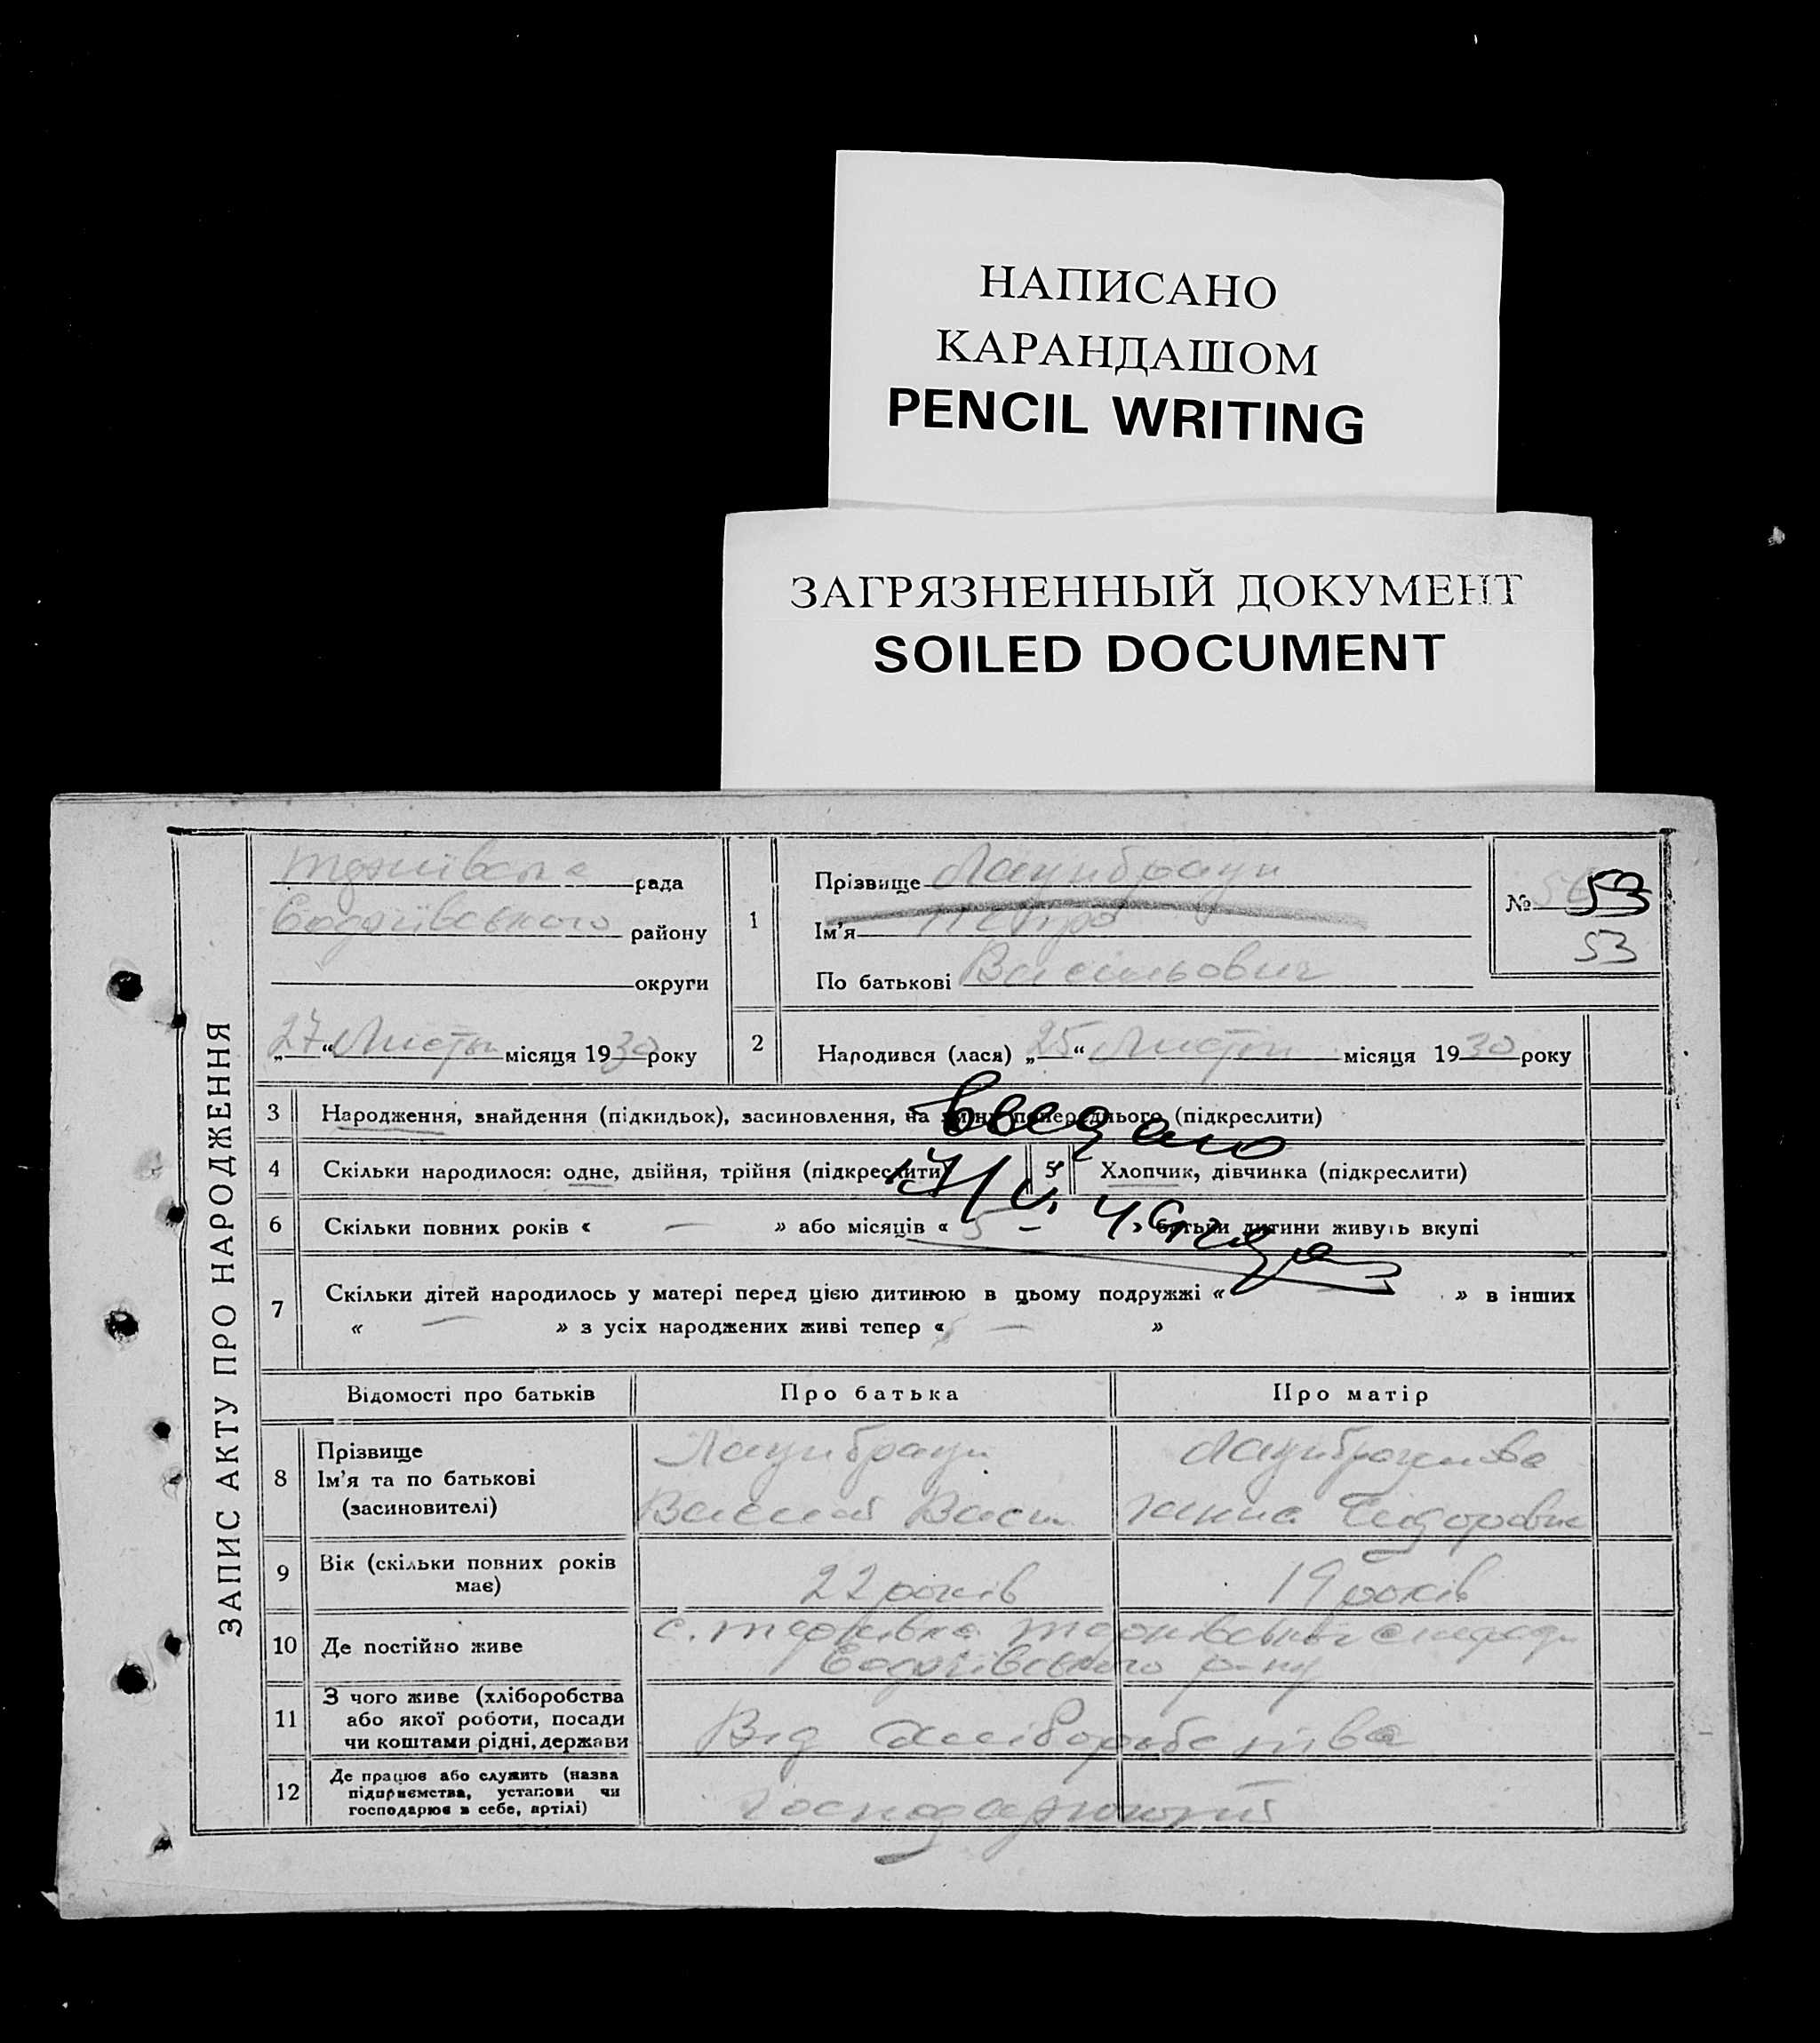 НАПИСАНО
КАРАНДАШОМ
PENCIL WRITING
ЗАГРЯЗНЕННЫЙ ДОКУМЕНТ
SOILED DOCUMENT
ЗАПИС АКТУ ПРО НАРОДЖЕННЯ
рада
району
округи
„27“ Листоп місяця 1930 року
1
Прізвище Лаунбраун
Ім'я Петро
По батькові Васильович
№ 53
53
2
Народився (лася) „25“ Листоп місяця 1930 року
3 Народження, знайдення (підкидьок), засиновлення, на зміну попереднього (підкреслити)
введено
4 Скільки народилося: одне, двійня, трійня (підкреслити)
5 Хлопчик, дівчинка (підкреслити)
6 Скільки повних років « — » або місяців « 5 — » батьки дитини живуть вкупі
7 Скільки дітей народилось у матері перед цією дитиною в цьому подружжі « » в інших
« — » з усіх народжених живі тепер « — »
Відомості про батьків
Про батька
Про матір
8 Прізвище
Ім'я та по батькові
(засиновителі)
Лаунбраун
Василь Васил
Лаунбраунова
Ганна Сидоровна
9 Вік (скільки повних років
має)
22 років
19 років
10 Де постійно живе
с. Тернівка Тернівської сільради
р-ну
11 З чого живе (хліборобства
або якої роботи, посади
чи коштами рідні, держави
Від хліборобства
12 Де працює або служить (назва
підприємства, установи чи
господарює в себе, артілі)